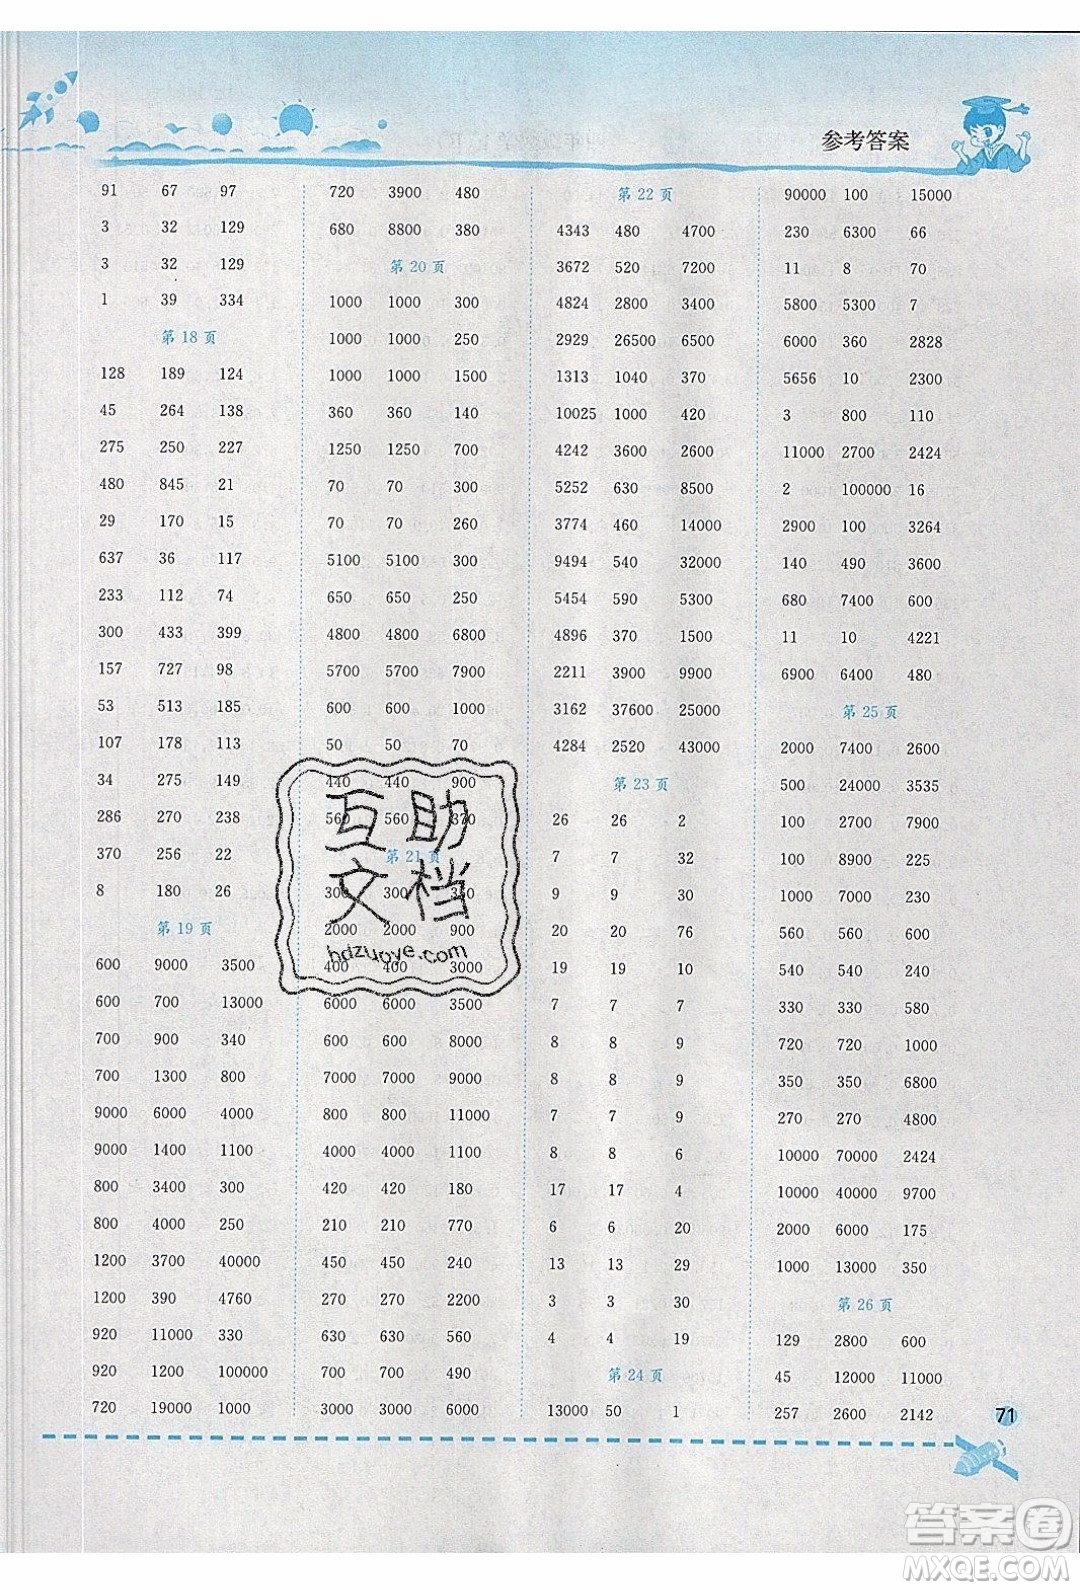 参考答案
91 67 97
3 32 129
3 32 129
1 39 334
第 18 页
128 189 124
45 264 138
275 250 227
480 845 21
29 170 15
637 36 117
233 112 74
300 433 399
157 727 98
53 513 185
107 178 113
34 275 149
286 270 238
370 256 22
8 180 26
第 19 页
600 9000 3500
600 700 13000
700 900 340
700 1300 800
9000 6000 4000
9000 1400 1100
800 3400 300
800 4000 250
1200 3700 40000
1200 390 4760
920 11000 330
920 1200 100000
720 19000 1000
720 3900 480
680 8800 380
第 20 页
1000 1000 300
1000 1000 250
1000 1000 1500
360 360 140
1250 1250 700
70 70 300
70 70 260
5100 5100 300
650 650 250
4800 4800 6800
5700 5700 7900
600 600 1000
50 50 70
440 440 900
560 560 370
第 21 页
300 300 350
2000 2000 900
400 400 3000
6000 6000 3500
600 600 8000
7000 7000 9000
800 800 11000
4000 4000 4000
420 420 180
210 210 770
450 450 240
270 270 2200
630 630 560
700 700 490
3000 3000 6000
第 22 页
4343 480 4700
3672 520 7200
4824 2800 3400
2929 26500 6500
1313 1040 370
10025 1000 420
4242 3600 2600
5252 630 8500
3774 460 14000
9494 540 32000
5454 590 5300
4896 370 1500
2211 3900 9900
3162 37600 25000
4284 2520 43000
第 23 页
26 26 2
7 7 32
9 9 30
20 20 76
19 19 10
7 7 7
8 8 9
8 8 9
7 7 9
8 8 6
17 17 4
6 6 20
13 13 29
3 3 30
4 4 19
第 24 页
13000 50 1
90000 100 15000
230 6300 66
11 8 70
5800 5300 7
6000 360 2828
5656 10 2300
3 800 110
11000 2700 2424
2 100000 16
2900 100 3264
140 490 3600
680 7400 600
11 10 4221
6900 6400 480
第 25 页
2000 7400 2600
500 24000 3535
100 2700 7900
100 8900 225
450 4500 230
560 560 600
540 540 240
330 330 580
720 720 1000
350 350 6800
270 270 4800
10000 70000 2424
10000 40000 9700
2000 6000 175
1000 13000 350
第 26 页
129 2800 600
45 12000 11000
257 2600 2142
71
互助
文档
hdzuoye.com
答案圈
MXQE.COM